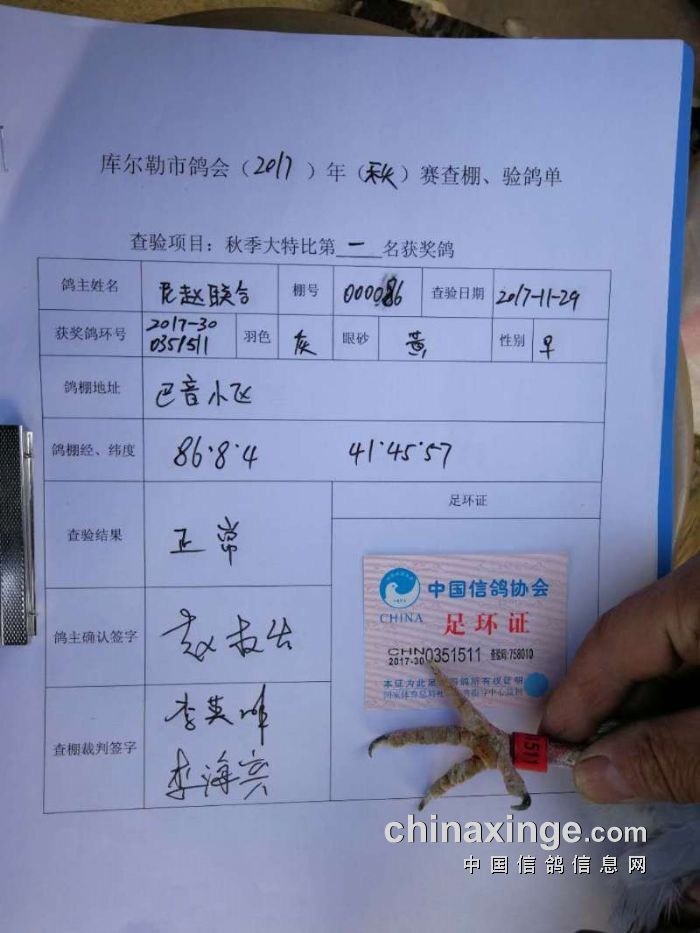 库尔勒市鸽会（2017）年（秋）赛查棚、验鸽单
查验项目：秋季大特比第一名获奖鸽
鸽主姓名 赵联合 棚号 000086 查验日期 2017-11-29
获奖鸽环号 2017-30 0351511 羽色 灰 眼砂 黄 性别 早
鸽棚地址 巴音小飞
鸽棚经、纬度 86·8·4 41·45·57
查验结果 正常 足环证
鸽主确认签字
查棚裁判签字 李英
李海宾
中国信鸽协会
CHINA
足环证
CHN
2017-30 0351511 查验码:758010
本证为此足环
1511
chinaxinge.com
中国信鸽信息网